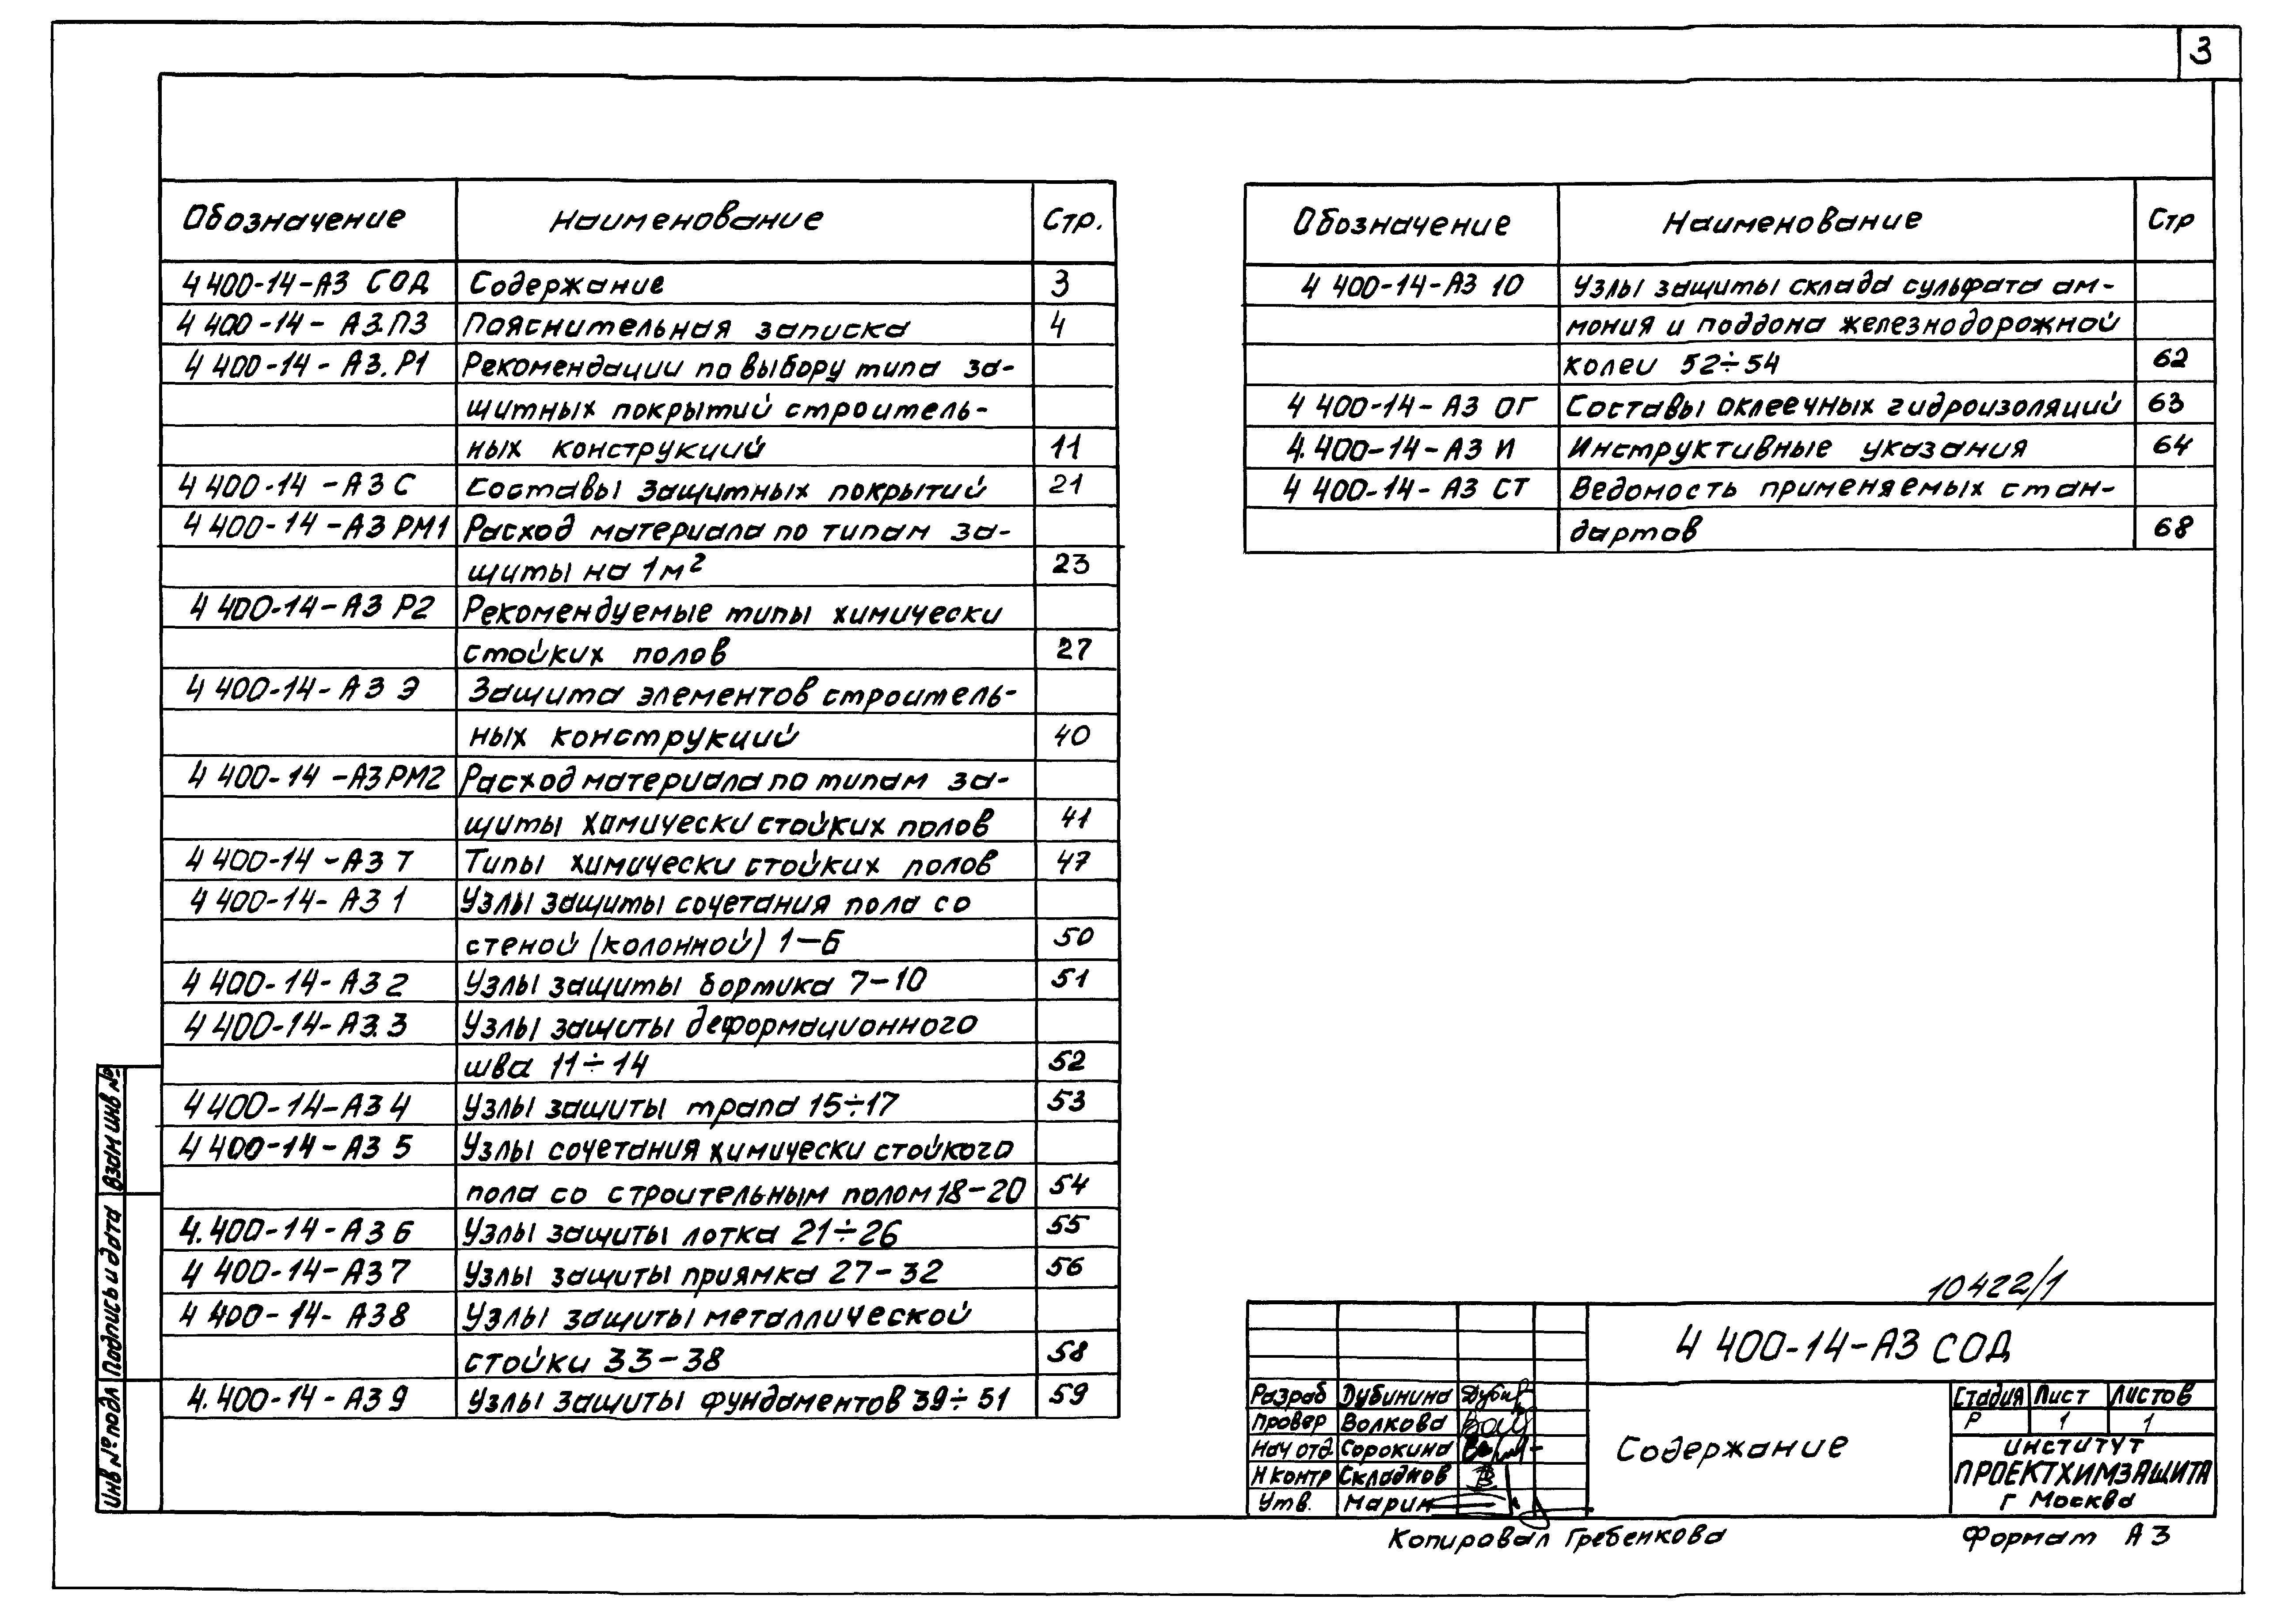 3
Обозначение Наименование Стр.
4 400-14-АЗ СОД Содержание 3
4 400-14-АЗ.ПЗ Пояснительная записка 4
4 400-14-АЗ.Р1 Рекомендации по выбору типа за-
щитных покрытий строитель-
ных конструкций 11
4 400-14-АЗ С Составы защитных покрытий 21
4 400-14-АЗ РМ1 Расход материала по типам за-
щиты на 1м² 23
4 400-14-АЗ Р2 Рекомендуемые типы химически
стойких полов 27
4 400-14-АЗ Э Защита элементов строитель-
ных конструкций 40
4 400-14-АЗ РМ2 Расход материала по типам за-
щиты химически стойких полов 41
4 400-14-АЗ Т Типы химически стойких полов 47
4 400-14-АЗ 1 Узлы защиты сочетания пола со
стеной (колонной) 1-6 50
4 400-14-АЗ 2 Узлы защиты бортика 7-10 51
4 400-14-АЗ.3 Узлы защиты деформационного
шва 11÷14 52
4 400-14-АЗ 4 Узлы защиты трапа 15÷17 53
4 400-14-АЗ 5 Узлы сочетания химически стойкого
пола со строительным полом 18-20 54
4.400-14-АЗ 6 Узлы защиты лотка 21÷26 55
4 400-14-АЗ 7 Узлы защиты приямка 27-32 56
4 400-14-АЗ 8 Узлы защиты металлической
стойки 33-38 58
4.400-14-АЗ 9 Узлы защиты фундаментов 39÷51 59
Обозначение Наименование Стр
4 400-14-АЗ 10 Узлы защиты склада сульфата ам-
мония и поддона железнодорожной
колеи 52÷54 62
4 400-14-АЗ ОГ Составы оклеечных гидроизоляций 63
4.400-14-АЗ И Инструктивные указания 64
4 400-14-АЗ СТ Ведомость применяемых стан-
дартов 68
Взам инв №
Подпись и дата
Инв № подл
10422/1
4 400-14-АЗ СОД
Разраб Дубинина
Провер Волкова
Нач отд. Сорокина
Н контр Складнов
Утв. Марин
Содержание
Стадия Лист Листов
Р 1 1
институт
ПРОЕКТХИМЗАЩИТА
г Москва
Копировал Гребенкова Формат А3